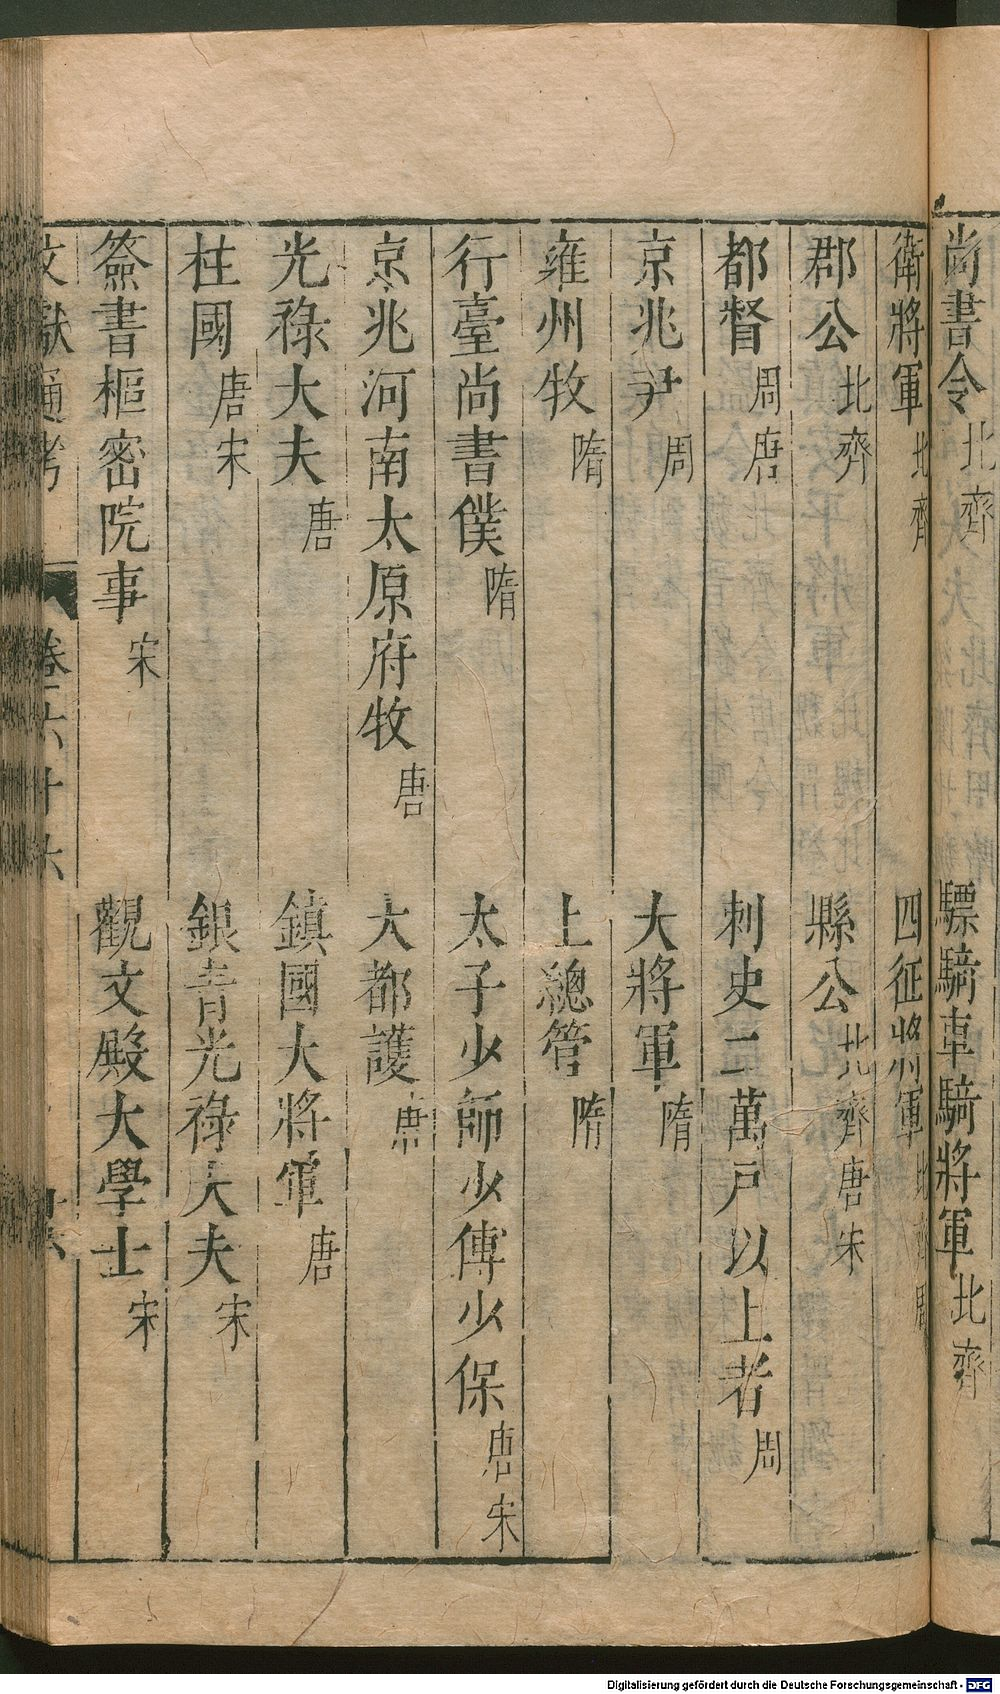 尚書令北齊 驃騎車騎將軍北齊
衛將軍北齊 四征將軍北齊周
郡公北齊 縣公北齊唐宋
都督周唐 刺史二萬戸以上者周
京兆尹周 大將軍隋
雍州牧隋 上總管隋
行臺尚書僕隋 太子少師少傅少保唐宋
京兆河南太原府牧唐 大都護唐
光祿大夫唐 鎮國大將軍唐
柱國唐宋 銀青光祿大夫宋
簽書樞密院事宋 觀文殿大學士宋
文獻通考 卷六十六
Digitalisierung gefördert durch die Deutsche Forschungsgemeinschaft - DFG